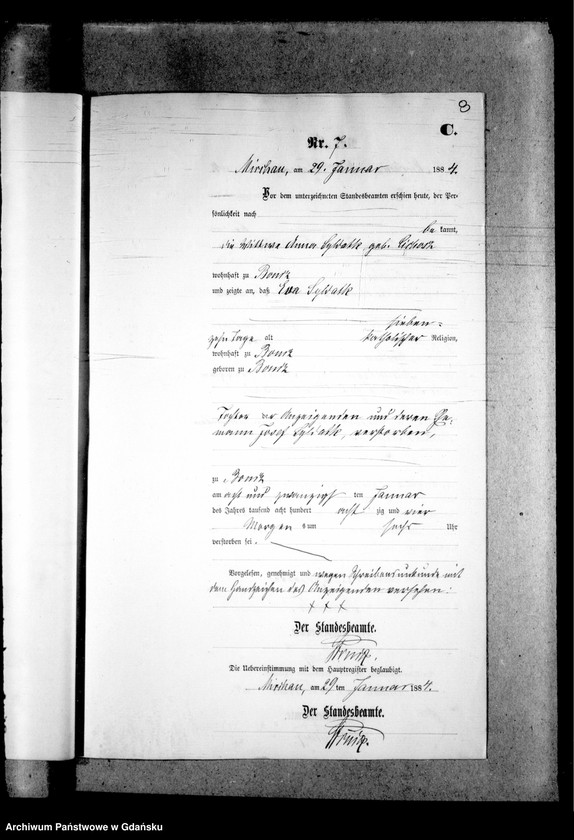 8
C.
Nr. 7.
Mirchau, am 29. Januar 1884.
Vor dem unterzeichneten Standesbeamten erschien heute, der Per-
sönlichkeit nach
be kannt,
die Wittwe Anna geb.
wohnhaft zu
und zeigte an, daß Eva
sieben-
zehn Tage alt katholischer Religion,
wohnhaft zu
geboren zu
Tochter der Anzeigenden und deren Ehe-
mann Josef verstorben,
zu
am acht und zwanzigsten Januar
des Jahres tausend acht hundert acht zig und vier
Morgens um sechs Uhr
verstorben sei.
Vorgelesen, genehmigt und wegen Schreibensunkunde mit
dem Handzeichen des Anzeigenden versehen:
x x x
Der Standesbeamte.
Die Uebereinstimmung mit dem Hauptregister beglaubigt.
Mirchau, am 29 ten Januar 1884.
Der Standesbeamte.
Archiwum Państwowe w Gdańsku